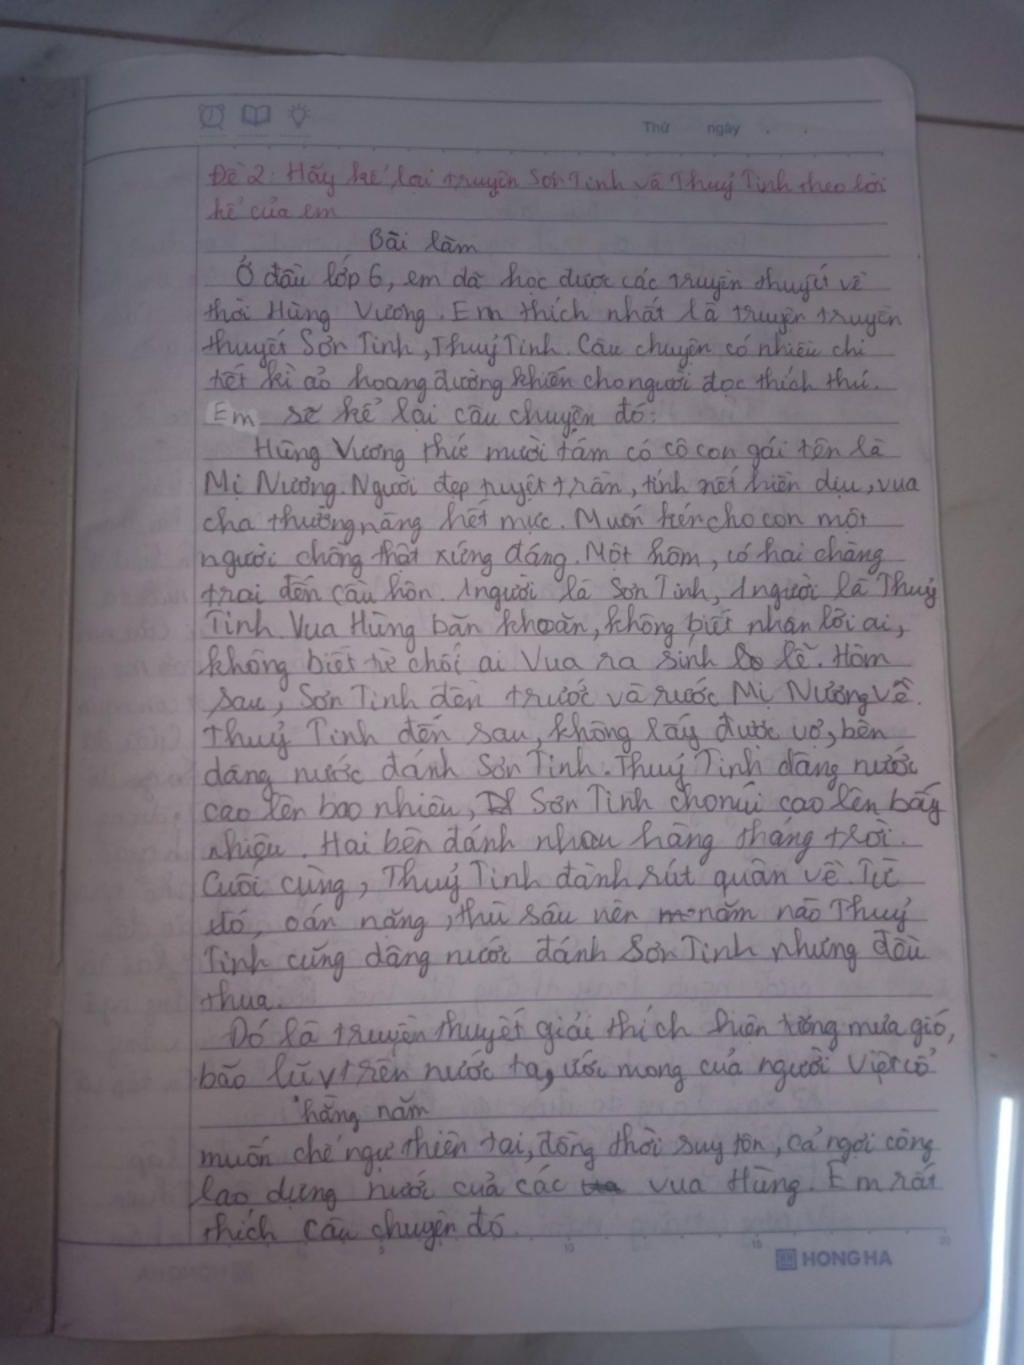 Thứ ngày
Đề 2: Hãy kể lại truyện Sơn Tinh và Thuỷ Tinh theo lời
kể của em
Bài làm
Ở đầu lớp 6, em đã học được các truyền thuyết về
thời Hùng Vương. Em thích nhất là truyện truyền
thuyết Sơn Tinh, Thuỷ Tinh. Câu chuyện có nhiều chi
tiết kì ảo hoang đường khiến cho người đọc thích thú.
Em sẽ kể lại câu chuyện đó:
Hùng Vương thứ mười tám có cô con gái tên là
Mị Nương. Người đẹp tuyệt trần, tính nết hiền dịu, vua
cha thường nâng hết mực. Muốn kén cho con một
người chồng thật xứng đáng. Một hôm, có hai chàng
trai đến cầu hôn. 1 người là Sơn Tinh, 1 người là Thuỷ
Tinh. Vua Hùng băn khoăn, không biết nhận lời ai,
không biết từ chối ai. Vua ra sính lễ. Hôm
sau, Sơn Tinh đến trước và rước Mị Nương về.
Thuỷ Tinh đến sau, không lấy được vợ, bèn
dâng nước đánh Sơn Tinh. Thuỷ Tinh dâng nước
cao lên bao nhiêu, Sơn Tinh cho núi cao lên bấy
nhiêu. Hai bên đánh nhau hàng tháng trời.
Cuối cùng, Thuỷ Tinh đành rút quân về. Từ
đó, oán nặng, thù sâu nên năm nào Thuỷ
Tinh cũng dâng nước đánh Sơn Tinh nhưng đều
thua.
Đó là truyền thuyết giải thích hiện tượng mưa gió,
bão lũ trên nước ta, ước mong của người Việt cổ
hằng năm
muốn chế ngự thiên tai, đồng thời suy tôn, ca ngợi công
lao dựng nước của các vua Hùng. Em rất
thích câu chuyện đó.
5 10 15 20
HONG HA